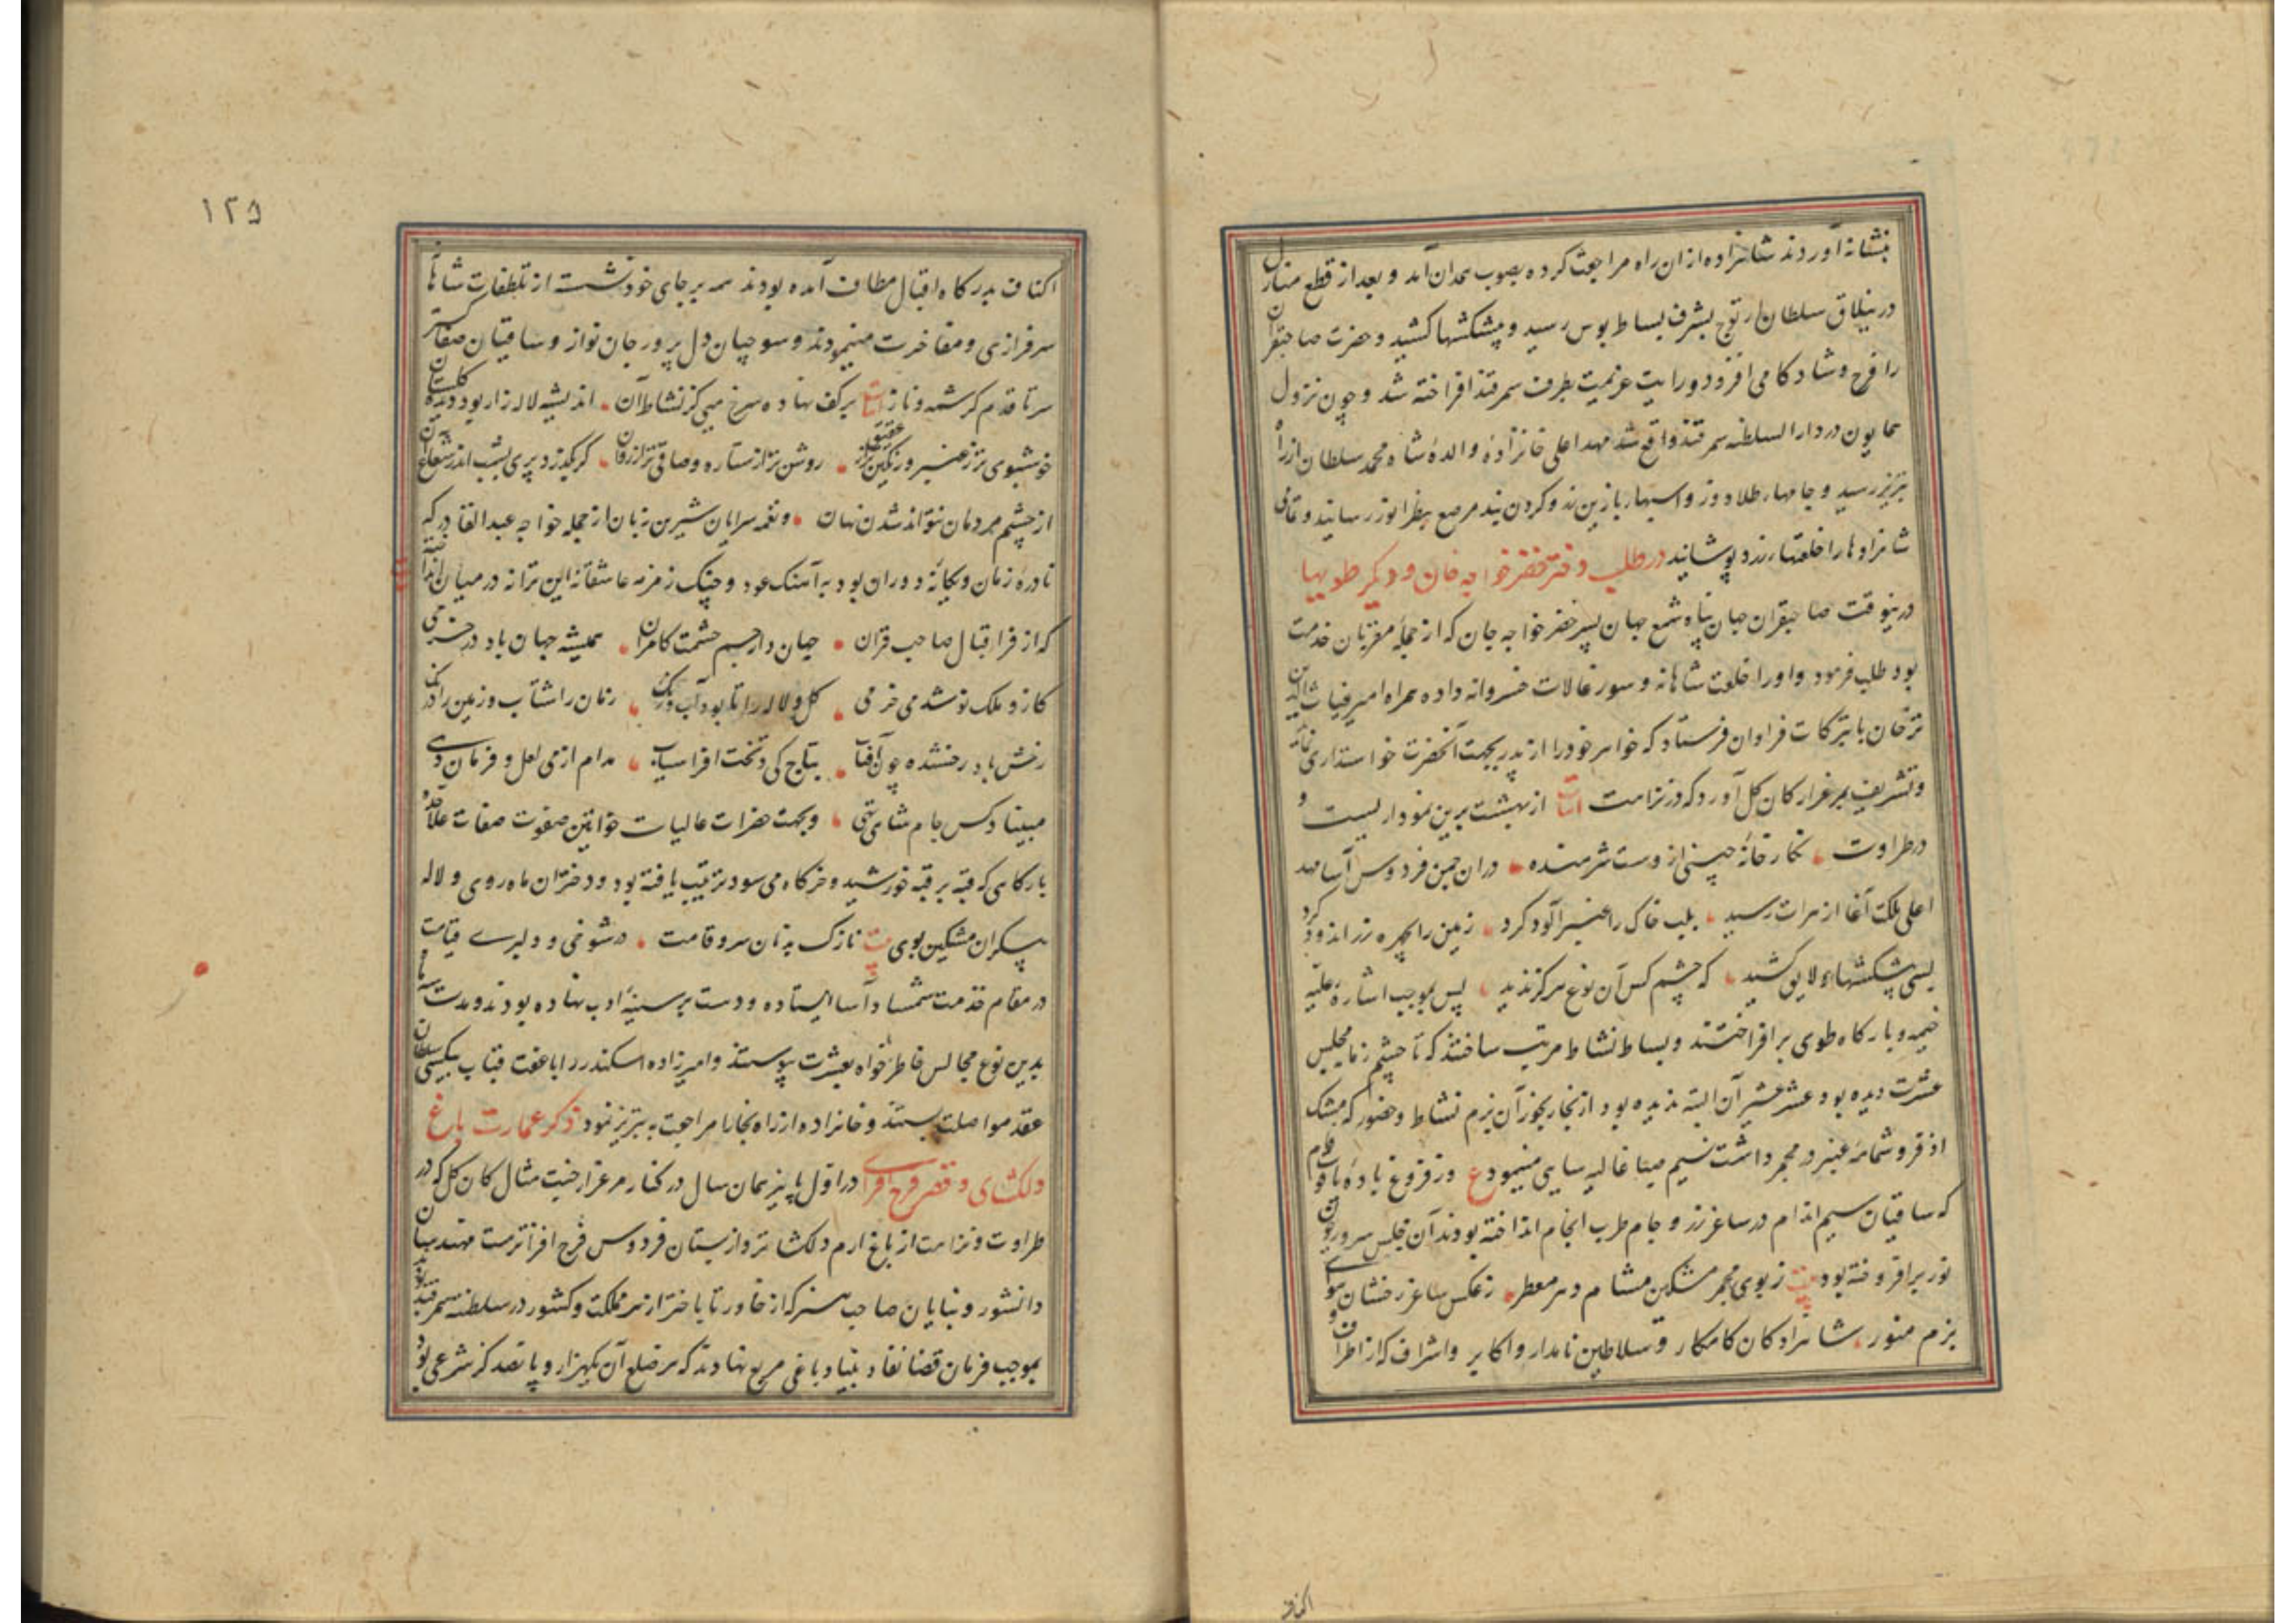 بنشانه آوردند شاهزاده از ان راه مراجعت کرده بصوب همدان آمد و بعد از قطع منازل
در ییلاق سلطان ارتوج بشرف بساط بوس رسید و پیشکشها کشید و حضرت صاحبقران
را فرح و شادکامی افزود و رایت عزیمت بطرف سمرقند افراخته شد و چون نزول
همایون در دار السلطنه سمرقند واقع شد مهد اعلی خانزاده والدهٔ شاه محمد سلطان از راه
تبریز رسید و جامهاء طلادوز و اسبها با زین زر و کردن بند مرصع بنظر انور رسانید و تمامی
شاهزادها را خلعتهاء زر پوشانید در طلب دختر خضر خواجه خان و دیکر طویها
درینوقت صاحبقران جهان پناه شمع جهان پسر خضر خواجه خان که از جمله مقربان خدمت
بود طلب فرمود و او را خلعت شاهانه و سورغالات خسروانه داده همراه امیر غیاث الدین
ترخان با تبرکات فراوان فرستاد که خواهر خود را از پدر بجهت آنحضرت خواستداری نماید
و تشریف بمرغزار کان کل آورد که در نزاهت ابیات از بهشت برین نمودار یست و
در طراوت نکارخانهٔ چین از وست شرمنده دران چمن فردوس آسا مهد
اعلی ملکت آغا از هرات رسید بلب خاک را عنبر آلود کرد زمین را بچهره زر اندود کرد
بسی پیشکشهاء لایق کشید که چشم کس آن نوع هرکز ندید پس بموجب اشاره علیه
خیمه و بارکاه طوی برافراختند و بساط نشاط مرتب ساختند که تا چشم زما مجلس
عشرت دیده بود عشر عشیر آن البته ندیده بود از بخار بخور آن بزم نشاط و حضور که مشک
اذفر و شمامه عنبر در مجمر داشت نسیم صبا غالیه سایی مینمود ع وز فروغ بادهٔ یاقوت فام
که ساقیان سیم اندام در ساغر زر و جام طرب انجام انداخته بودند آن مجلس سرور قرین
نور برافروخته بود بیت ز بوی مجمر مشکین مشام دهر معطر ز عکس ساغر رخشان هوای
بزم منور شاهزادکان کامکار و سلاطین نامدار و اکابر و اشراف که از اطراف و
اکناف
۱۲۵
اکناف بدرکاه اقبال مطاف آمده بودند همه بر جای خود نشست از تلطفات شاهانه
سرفرازی و مفاخرت مینمودند و سوچیان دل پرور جان نواز و ساقیان صفا کستر
سر تا قدم کرشمه و ناز ابیات بر کف نهاده سرخ میی کز نشاط آن اندیشه لاله زار بود دیده کلستان
خوشبوی تر ز عنبر و رنکین تر از عقیق روشن تر از ستاره و صافی تر از روان کر بکذرد پری بشب اندر شعاع آن
از چشم مردمان نتواند شدن نهان و نغمه سرایان شیرین زبان از جمله خواجه عبد القادر که
نادرهٔ زمان و یکانهٔ دوران بود به آهنک عود و چنک زمزمه عاشقانه این ترانه در میان انداخته
که از فر اقبال صاحب قران جهان دار جم حشمت کامران همیشه جهان باد در خرمی
کازو ملک نو شد می خرمی کل و لاله را تا بود آب و رنک زمان را شتاب و زمین را درنک
رخش باد رخشنده چون آفتاب بتاج کی و تخت افراسیاب مدام از می لعل و فرمان دهی
مبیناد کس جام شاهی تهی و بجهت حضرات عالیات خواتین صفوت صفات علاحده
بارکاهی که قبه بر قبه خورشید و خرکاه می سود ترتیب یافته بود و دختران ماه روی و لاله
پیکران مشکین بوی بیت نازک بدنان سرو قامت در شوخی و دلبری قیامت
در مقام خدمت شمشاد آسا ایستاده و دست بر سینهٔ ادب نهاده بودند و مدت سه ماه
بدین نوع مجالس خاطرخواه بعشرت پیوستند و امیرزاده اسکندر را با عفت قباب بیکیسی سلطان
عقد مواصلت بستند و خانزاده از راه بخارا مراجعت به تبریز نمود ذکر عمارت باغ
دلکشای و قصر فرح افزای در اول پاییز همان سال در کنار مرغزار جنت مثال کان کل که در
طراوت و نزاهت از باغ ارم دلکشا تر و از بستان فردوس فرح افزا ترست مهندسان
دانشور و بنایان صاحب هنر که از خاور تا باختر از هر مملکت و کشور در سلطنه سمرقند بودند
بموجب فرمان قضا نفاد بنیاد باغی مربع نهادند که هر ضلع آن یکهزار و پانصد کز شرعی بود